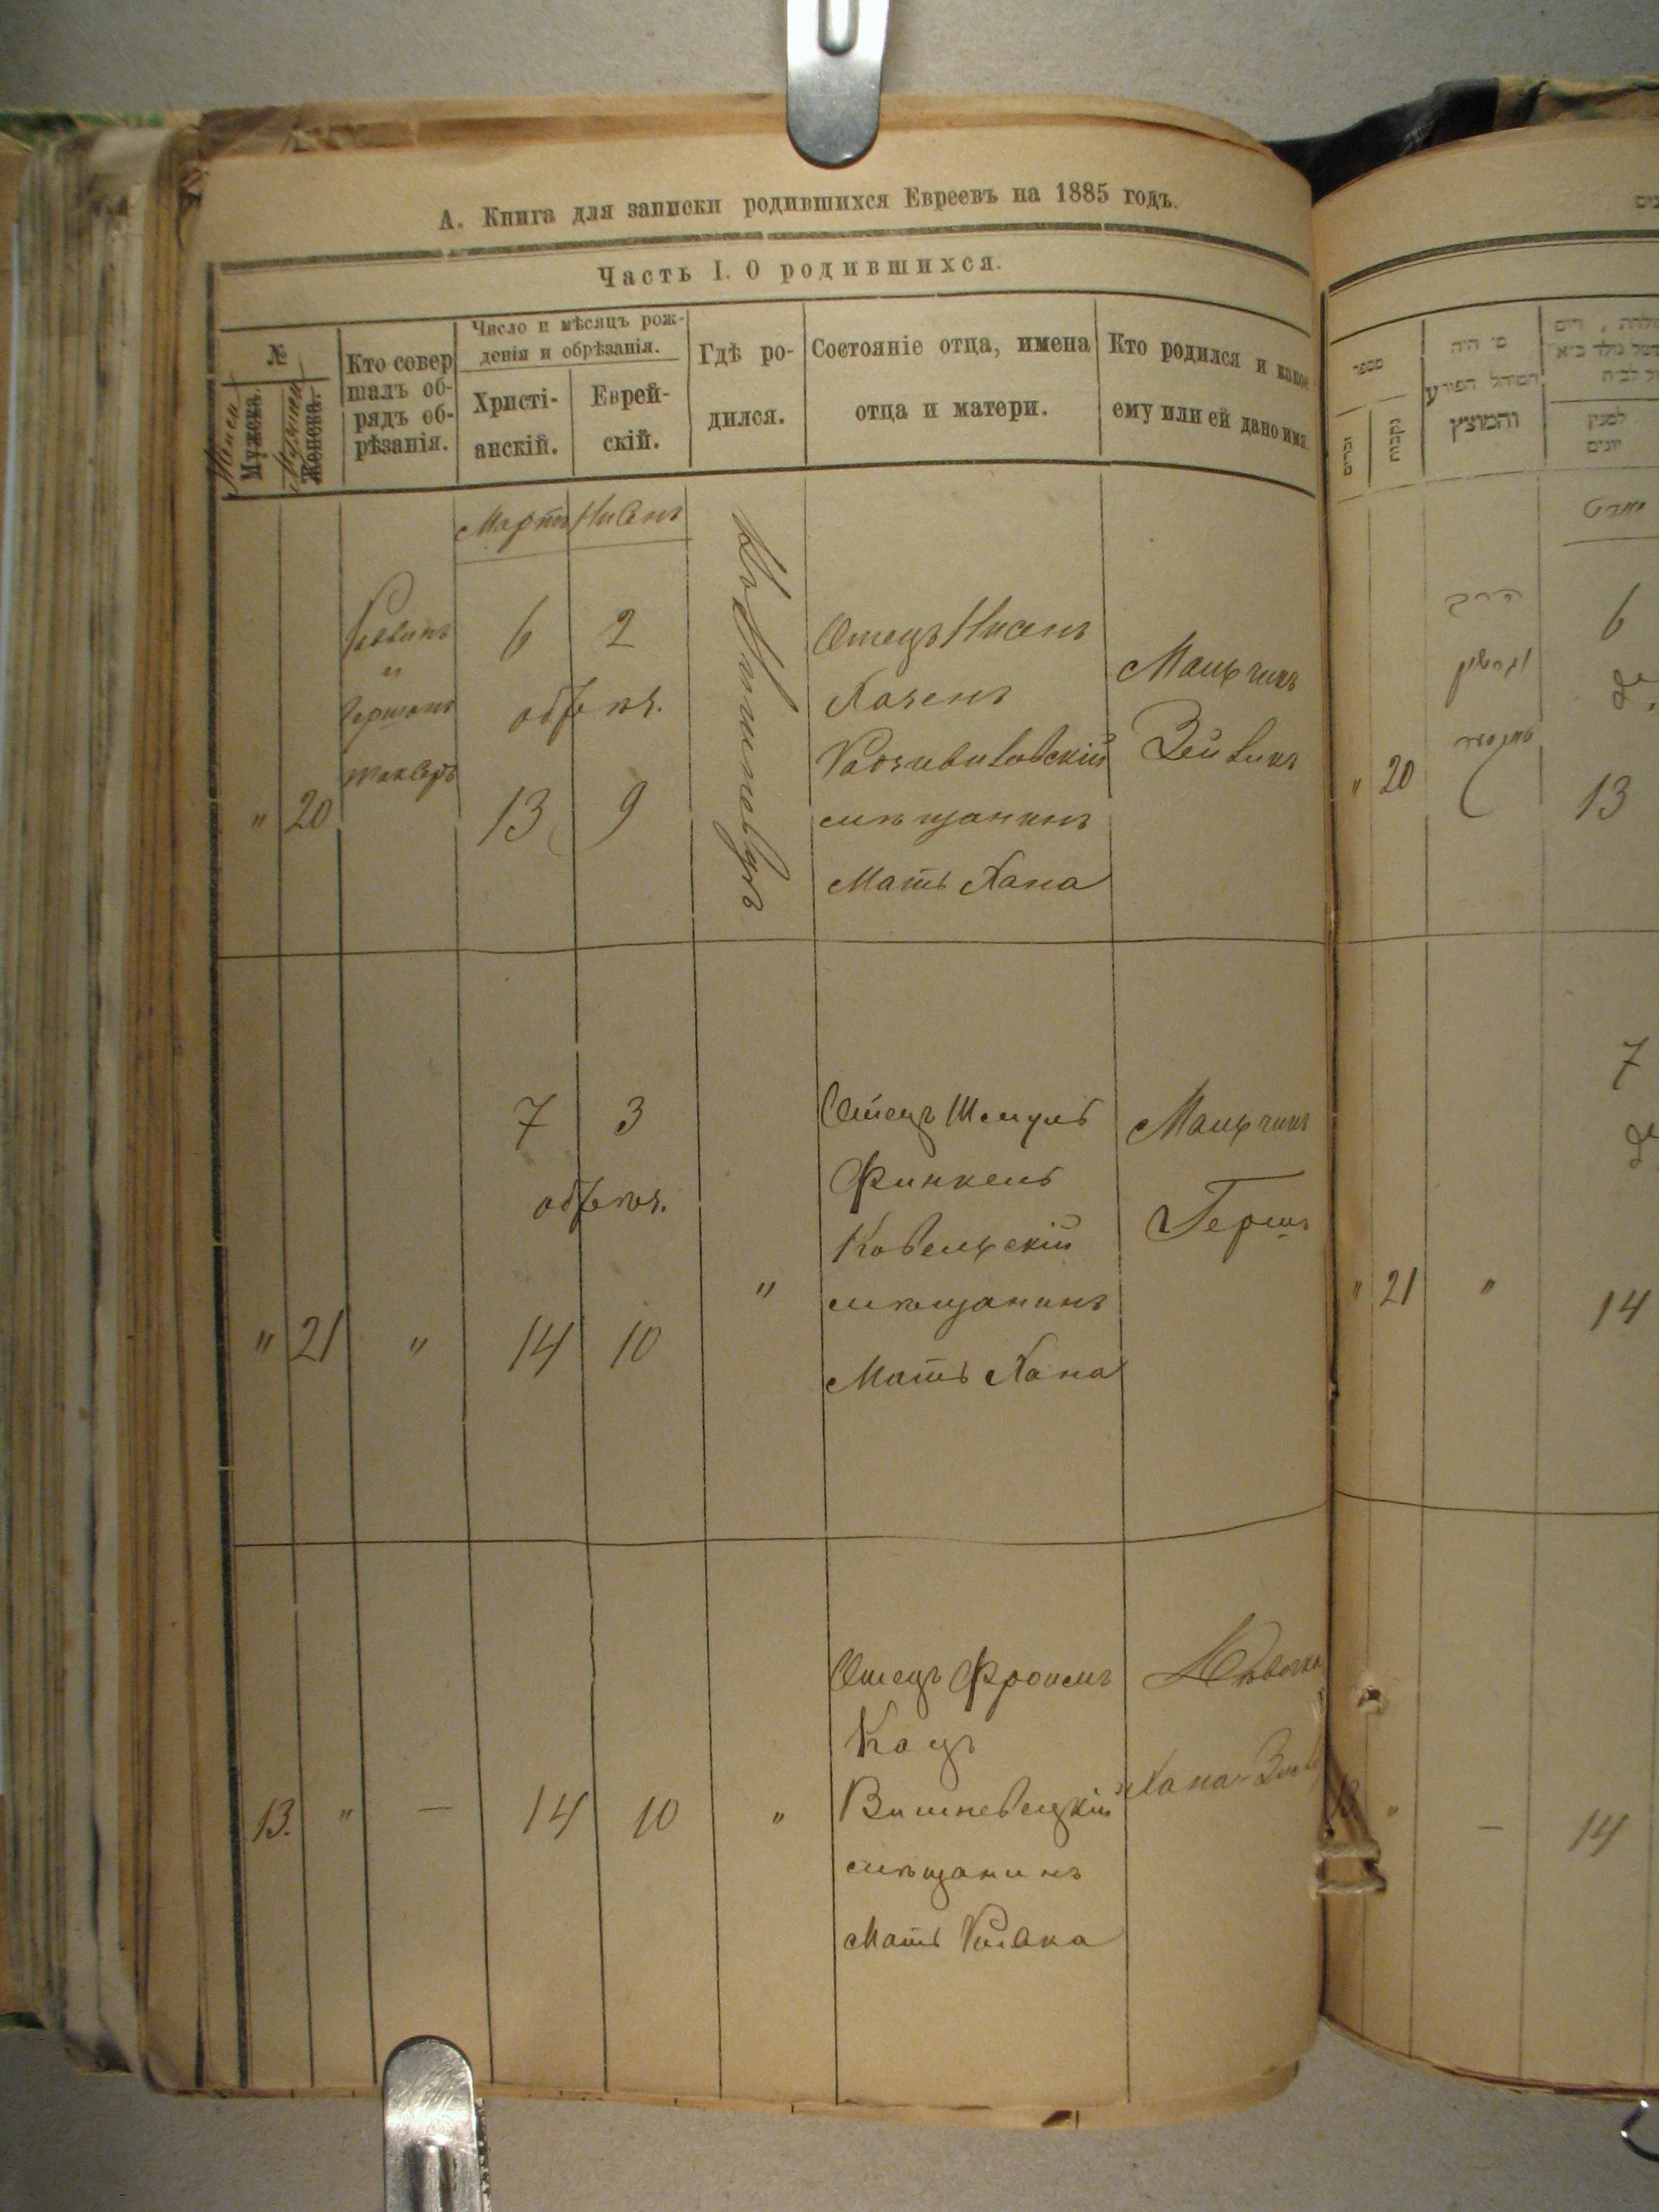 А. Книга для записки родившихся Евреевъ на 1885 годъ.
Часть I. О родившихся.
№
Мужеска.
Женска.
Женск
Мужеск
Кто совер
шалъ об-
рядъ об-
рѣзанія.
Число и мѣсяцъ рож-
денія и обрѣзанія.
Христі-
анскій.
Еврей-
скій.
Гдѣ ро-
дился.
Состояніе отца, имена
отца и матери.
Кто родился и какое
ему или ей дано имя.
Мартъ Нисанъ
" 20
Раввинъ
и
Гершонъ
6 2
обрѣз.
13 9
Отецъ Нисенъ
Хазенъ
Радзивиловскій
мѣщанинъ
Мать Хана
Мальчикъ
Зейвикъ
" 21 "
7 3
обрѣз.
14 10
"
Отецъ Шмуль
Финкель
Ковельскій
мѣщанинъ
Мать Хана
Мальчикъ
Гершъ
13. " — 14 10 "
Отецъ Фроимъ
Кацъ
Вишневецкій
мѣщанинъ
Мать
Дѣвочка
Хана
מספר
זכרים
נקבות
מי היה
המוהל הפורע
והמוצץ
למנין
יונים
6
13
" 20
7
" 21 "
14
" — 14